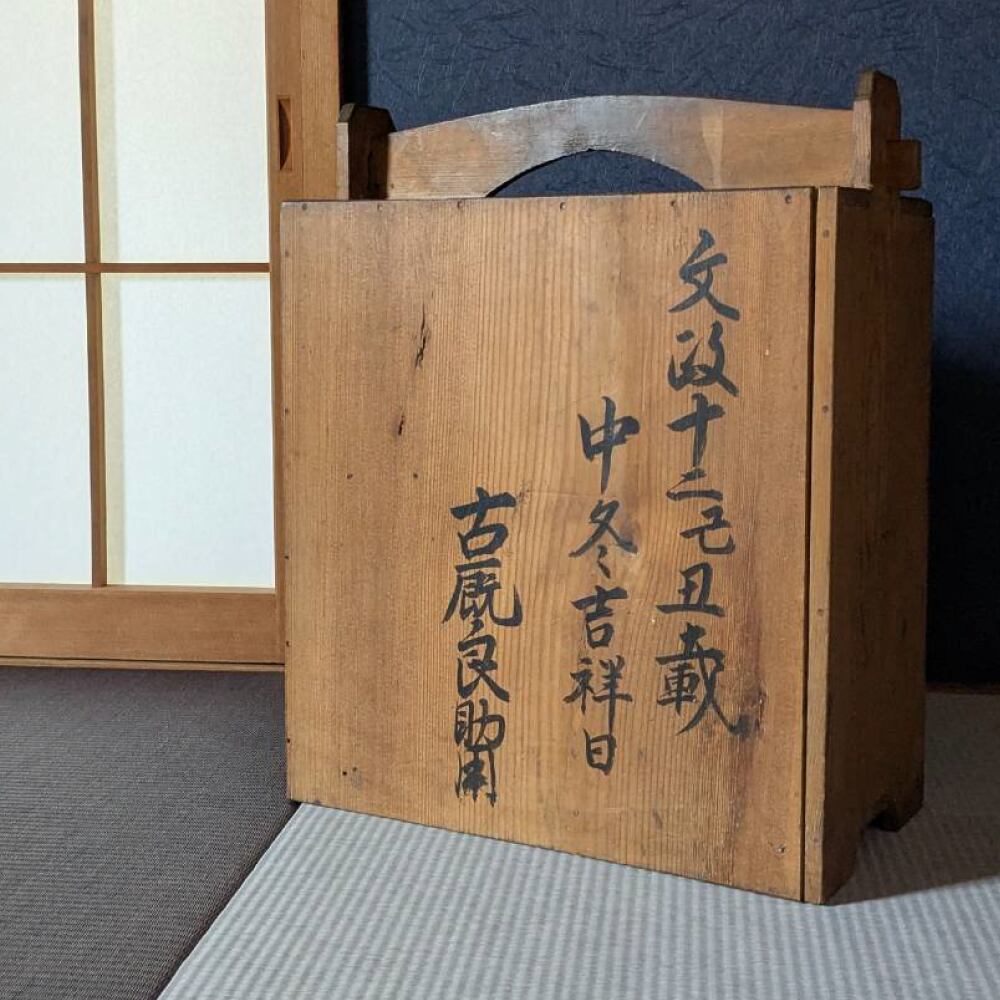 文政十二己丑載
中冬吉祥日
古厩良助用